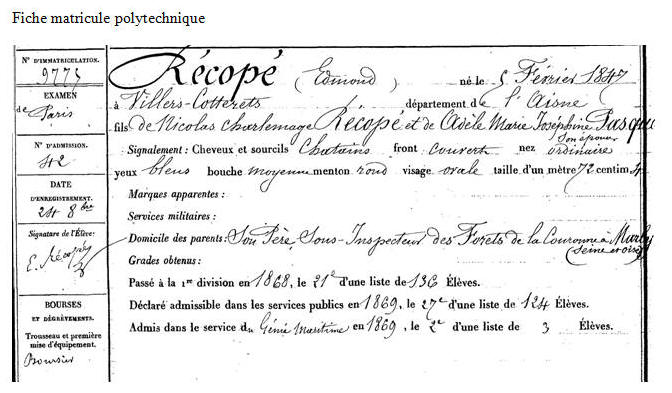 Fiche matricule polytechnique
N° D'IMMATRICULATION.
9775
EXAMEN
de Paris
N° D'ADMISSION.
42
DATE
D'ENREGISTREMENT.
24 8bre
Signature de l'Élève:
E. Récopé
BOURSES
ET DÉGRÈVEMENTS.
Trousseau et première
mise d'équipement.
Boursier
Récopé (Edmond) né le 5 Février 1847
à Villers-Cotterets département de l'Aisne
fils de Nicolas Charlemage Récopé et de Adèle Marie Joséphine Pasque
son épouse
Signalement : Cheveux et sourcils Chatains front couvert nez ordinaire
yeux bleus bouche moyenne menton rond visage ovale taille d'un mètre 72 centim 4
Marques apparentes :
Services militaires :
Domicile des parents : Son Père Sous-Inspecteur des Forets de la Couronne à Marly
(Seine et Oise)
Grades obtenus :
Passé à la 1re division en 1868, le 21e d'une liste de 136 Élèves.
Déclaré admissible dans les services publics en 1869, le 27e d'une liste de 124 Élèves.
Admis dans le service du Génie Maritime en 1869, le 2e d'une liste de 3 Élèves.